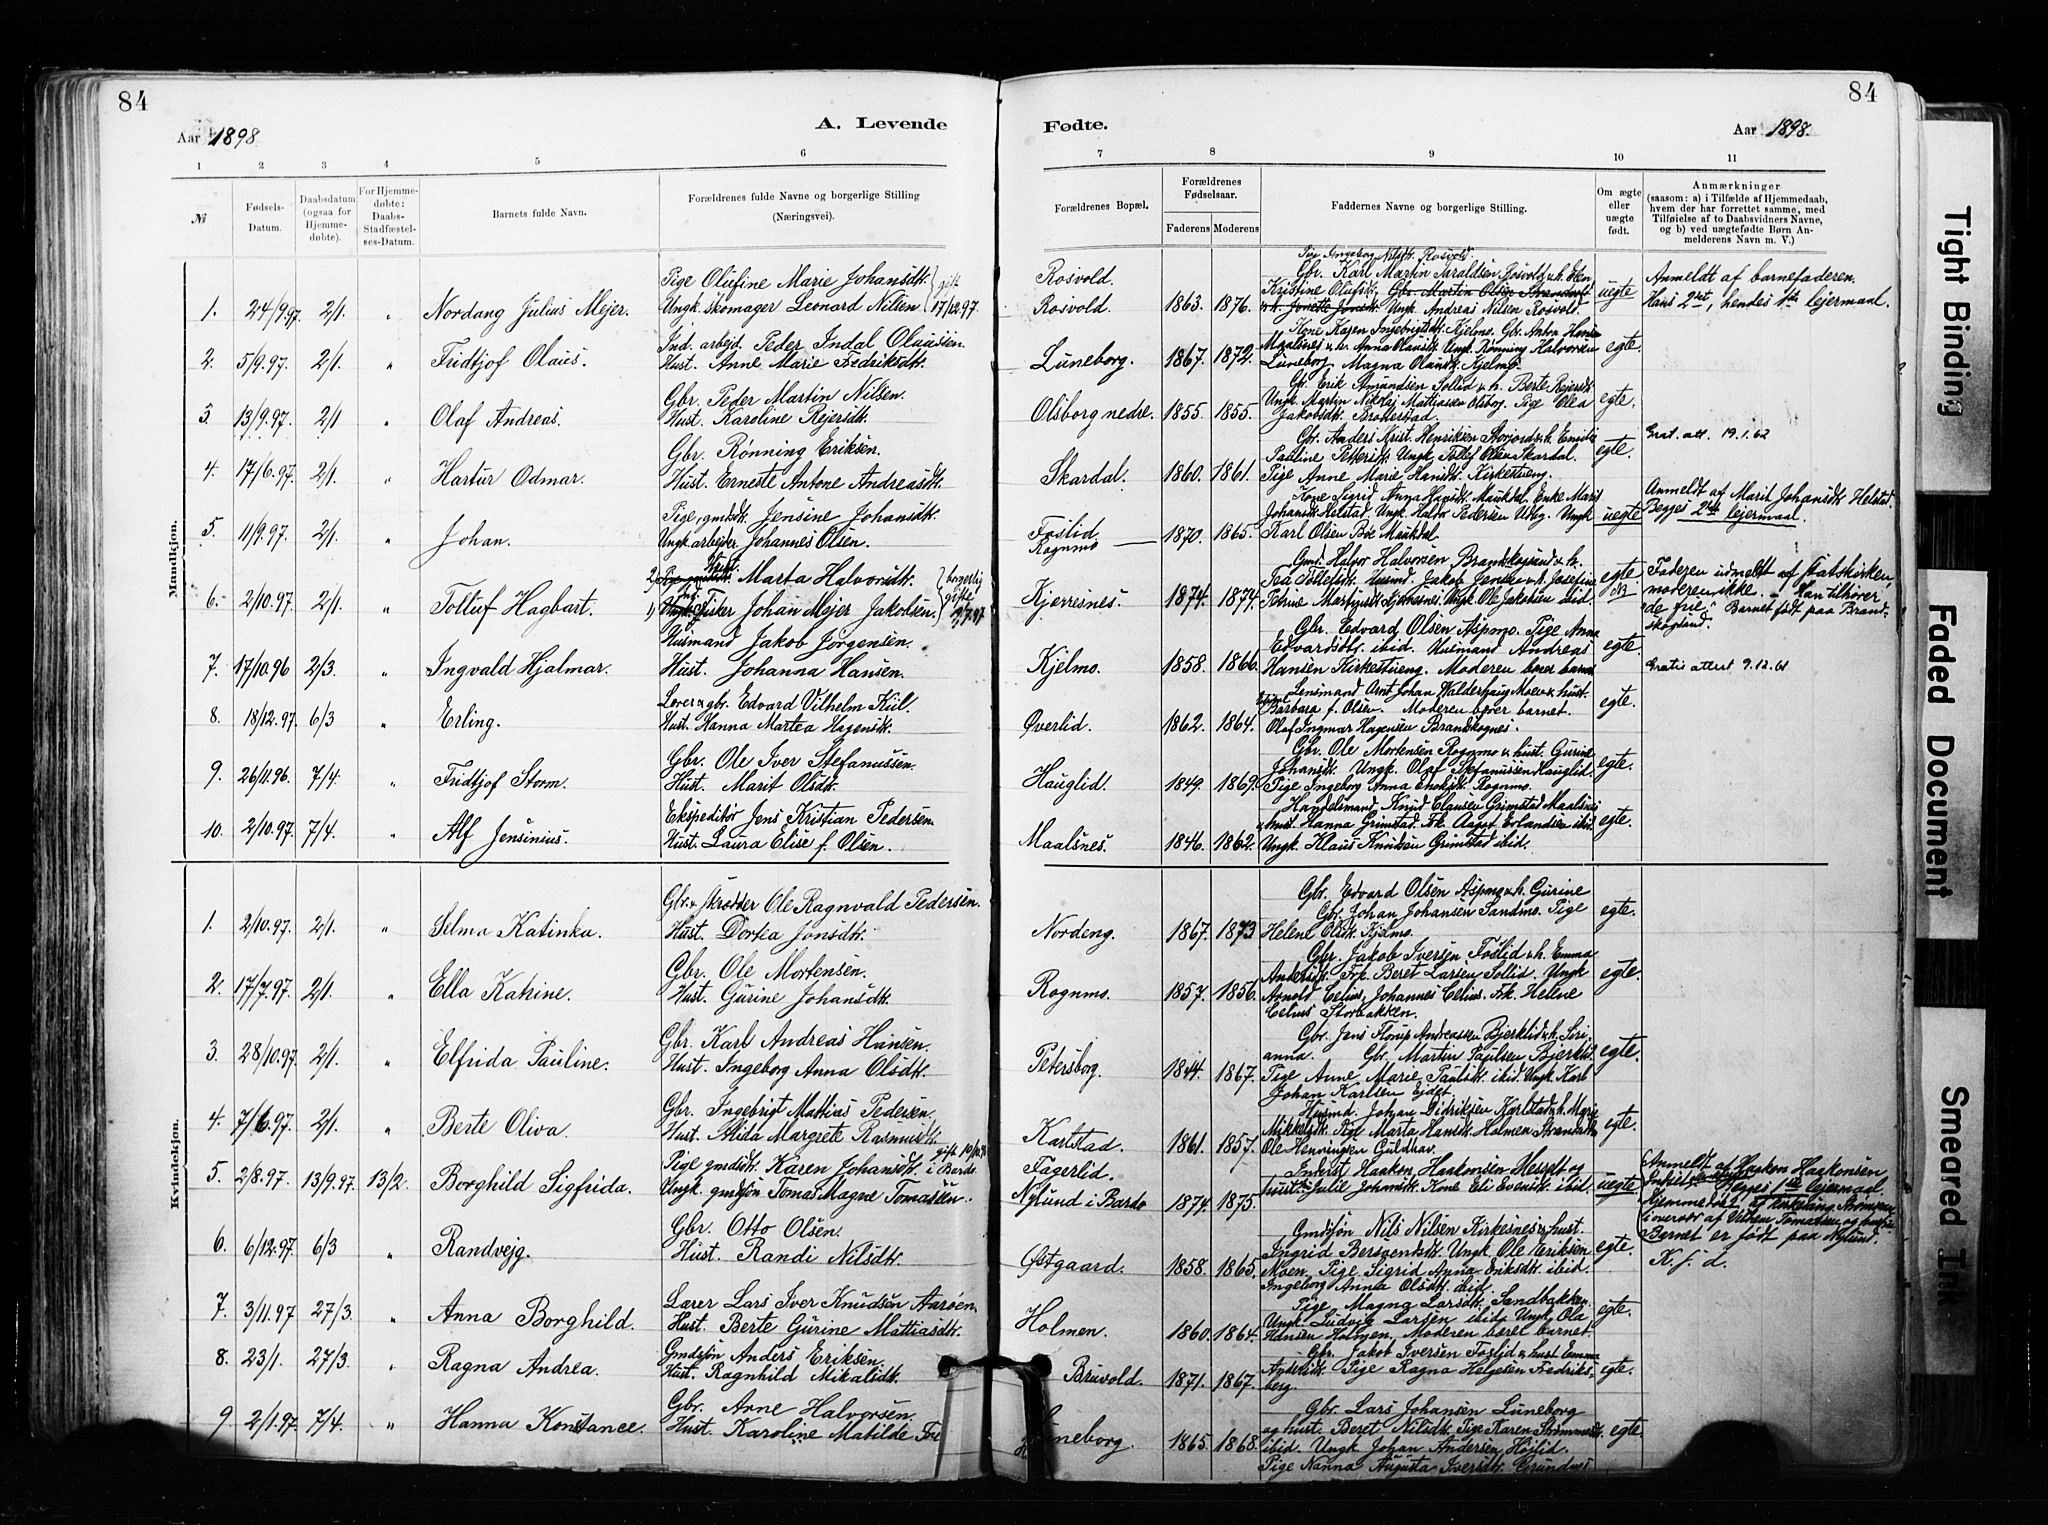 84
84
Aar 1898
A. Levende
Fødte.
Aar 1898.
1 2 3 4 5 6
7 8 9 10 11
№
Fødsels-Datum.
Daabsdatum (ogsaa for Hjemmedøbte).
For Hjemmedøbte: Daabs-Stadfæstelses-Datum.
Barnets fulde Navn.
Forældrenes fulde Navne og borgerlige Stilling (Næringsvei).
Forældrenes Bopæl.
Forældrenes Fødselsaar.
Faderens Moderens
Faddernes Navne og borgerlige Stilling.
Om ægte eller uægte født.
Anmærkninger
(saasom: a) i Tilfælde af Hjemmedaab, hvem der har forrettet samme, med Tilføielse af to Daabsvidners Navne, og b) ved uægtefødte Børn Anmelderens Navn m. V.)
Mandkjøn.
1. 24/9.97. 2/1. " Nordang Julius Mejer.
Pige Olufine Marie Johansdtr. gift
Ungk. skomager Leonard Nilsen 17/12 97.
Rosvold.
Rosvold. 1863. 1876.
Pige Ingeborg Nilsdtr. Rosvold
Gbr. Karl Martin Haraldsen Rosvold
Kristine Olufsdtr.
Ungk. Andreas Nilsen Rosvold.
uegte
Anmeldt af barnefaderen.
Hans 2det, hendes 1ste lejermaal.
2. 5/9.97. 2/1. " Fridtjof Olaus.
Ind. arbejd. Peder Indal Olaussen
Hust. Anne Marie Fredriksdtr.
Luneborg. 1867. 1872.
Kone Karen Ingebrigtsdtr. Kjelmo. Gbr. Anton Hansen
Maalsnes v. h. Anna Olausdtr. Ungk. Rønning Halvorsen
Luneborg Magna Olausdtr. Kjelmo.
egte.
3. 13/9.97. 2/1. " Olaf Andreas.
Gbr. Peder Martin Nilsen.
Hust. Karoline Rejersdtr.
Olsborg nedre. 1855. 1855.
Gbr. Erik Amundsen Sollid v. h. Berte Rejersdtr
Ungk. Martin Nikolaj Mattiassen Olsborg. Pige Olea
Jakobsdtr.
egte.
4. 17/6.97. 2/1. " Hartur Odmar.
Gbr. Rønning Eriksen.
Hust. Erneste Antone Andreasdtr.
Skardal. 1860. 1861.
Gbr. Anders Krist. Henriksen Storjord v. h. Emilie
Pauline Pettersdtr. Ungk. Tollef Olsen Skardal.
Pige Anne Marie Hansdtr. Kirkestueng.
egte.
Grat. att. 19.1.62
5. 11/9.97. 2/1. " Johan.
Pige, gmdsdtr. Jensine Johansdtr.
Ungk. arbejder Johannes Olsen.
Foslid
Rognmo 1870. 1865.
Kone Sigrid Anna Hansdtr. Maukdal. Enke Marit
Johansdtr. Helstad. Ungk. Halvor Pedersen Udby. Ungk
Karl Olsen Boe Maukdal
uegte
Anmeldt af Marit Johansdtr. Helstad.
Begges 2det lejermaal.
6. 2/10.97. 2/1. " Tolluf Hagbart.
2) Hust. Marta Halvorsdtr. borgerlig
1) Fisker Johan Mejer Jakobsen. gifte
Kjerresnes. 1874. 1874.
Gmd. Halvor Halvorsen Brandskogsund v. h.
Pea Tollefsdtr. Husmd. Jakob Jensen v. h. Josefine
Petrine Martinsdtr. Kjerresnes. Ungk. Ole Jakobsen ibid.
egte
Faderen udmeldt af statskirken,
moderen ikke. Han tilhører
"de frie". Barnet født paa Brandskogland.
7. 17/10.96 2/3. " Ingvald Hjalmar.
Husmand Jakob Jørgensen.
Hust. Johanna Hansen.
Kjelmo. 1858. 1866.
Gbr. Edvard Olsen Aspmo. Pige Anna
Edvardsdtr. ibid. Husmand Andreas
Hansen Kirkestueng. Moderen bærer barnet
egte.
Gratis attest 9.12.61
8. 18/12.97. 6/3 " Erling.
Lærer v. gbr. Edvard Vilhelm Kiil.
Hust. Hanna Martea Hagensdtr.
Øverlid. 1862. 1864.
Lensmand Arnt Johan Walderhaug Moen v. hust.
Barbara f. Olsen. Moderen bærer barnet.
Olaf Ingmar Hagensen Brandskognes.
egte.
9. 26/11.96. 7/4. " Fridtjof Storm.
Gbr. Ole Iver Stefanussen.
Hust. Marit Olsdtr.
Hauglid. 1849. 1869.
Gbr. Ole Mortensen Rognmo v. hust. Gurine
Johansdtr. Ungk. Olaf Stefanussen Hauglid.
Pige Ingeborg Anna Enoksdtr. Rognmo.
egte.
10. 2/10.97. 7/4. " Alf Jensinius.
Ekspeditør Jens Kristian Pedersen
Hust. Laura Elise f. Olsen.
Maalsnes. 1846. 1862.
Handelsmand Knud Clausen Grimstad Maalsnes
v. hust. Hanna Grimstad. Frk. Aagot Erlandsen ibid.
Ungk. Klaus Knudsen Grimstad ibid.
egte.
Kvindekjøn.
1. 2/10.97. 2/1. " Selma Katinka.
Gbr. v. skrædder Ole Ragnvald Pedersen.
Hust. Dortea Jonsdtr.
Nordeng. 1867. 1873
Gbr. Edvard Olsen Aspmo v. h. Gurine
Gbr. Johan Johansen Sandmo. Pige
Helene Olsdtr. Kjelmo.
egte.
2. 17/7.97. 2/1. " Ella Katrine.
Gbr. Ole Mortensen.
Hust. Gurine Johansdtr.
Rognmo. 1857. 1856.
Gbr. Jakob Iversen Foslid v. h. Emma
Andersdtr. Frk. Beret Larsen Sollid. Ungk
Arnold Celius, Johannes Celius. Frk. Helene
Celius Storbakken.
egte.
3. 28/10.97. 2/1. " Elfrida Pauline.
Gbr. Karl Andreas Hansen.
Hust. Ingeborg Anna Olsdtr.
Petersborg. 1844. 1867.
Gbr. Jens Florup Andreassen Bjerklid v. h. Siri-
anna. Gbr. Martin Paulsen Bjerklid.
Pige Anne Marie Paulsdtr. ibid. Ungk. Karl
Johan Karlsen Ejdet.
egte.
4. 7/6.97. 2/1. " Berte Oliva.
Gbr. Ingebrigt Mattias Pedersen.
Hust. Alida Margrete Rasmusdtr.
Karlstad. 1861. 1857.
Husmd. Johan Didriksen Karlstad v. h. Marie
Mikkelsdtr. Pige Marta Hansdtr. Holmen
Ole Henningsen Guldhav.
egte.
5. 2/8.97. 13/9.97 13/2. Borghild Sigfrida.
Pige gmdsdtr. Karen Johansdtr. gift i Bardo
Ungk. gmdsøn Tomas Magne Tomassen.
Fagerlid.
Nylund i Bardo 1874. 1875.
Inderst Haakon Haakonsen Messelt og
hustr. Julie Johansdtr. Kone Eli Evensdtr. ibid.
uegte
Anmeldt af Haakon Haakonsen
Begges 1ste lejermaal.
Hjemmedøbt af
i overvær af Vilhelm Tomassen og
Barnet er født paa Nylund.
6. 6/12.97. 6/3 " Randvejg.
Gbr. Otto Olsen.
Hust. Randi Nilsdtr.
Østgaard. 1858. 1865.
Gmdsøn Nils Nilsen Kirkesnes v. hust.
Ingrid Bersvendsdtr. Ungk. Ole Eriksen
Moen. Pige Sigrid Anna Eriksdtr. ibid.
Ingeborg Anna Olsdtr. ibid.
egte.
K. f. d.
7. 3/11.97 27/3. " Anna Borghild.
Lærer Lars Iver Knudsen Aarøen.
Hust. Berte Gurine Mattiasdtr.
Holmen. 1860. 1864.
Pige Magna Larsdtr. Sandbakken.
Ungk. Ludvig Larsen ibid. Ungk. Ola
Hansen Holmen. Moderen bæret barnet.
egte.
8. 23/1. 27/3. " Ragna Andrea.
Gmdsøn Anders Eriksen.
Hust. Ragnhild Mikalsdtr.
Bruvold. 1871. 1867.
Gbr. Jakob Iversen Foslid v. hust Emma
Andersdtr. Pige Ragna Helgesen Fredriks-
berg.
egte.
9. 2/1.97. 7/4. " Hanna Konstance.
Gbr. Arne Halvorsen.
Hust. Karoline Matilde
Luneborg. 1865. 1868.
Gbr. Lars Johansen Luneborg
og hust. Beret Nilsdtr. Pige Karen
ibid. Ungk. Johan Andersen Højlid.
Pige Nanna Augusta Iversdtr. Grundnes.
egte.
Tight Binding
Faded Document
Smeared Ink